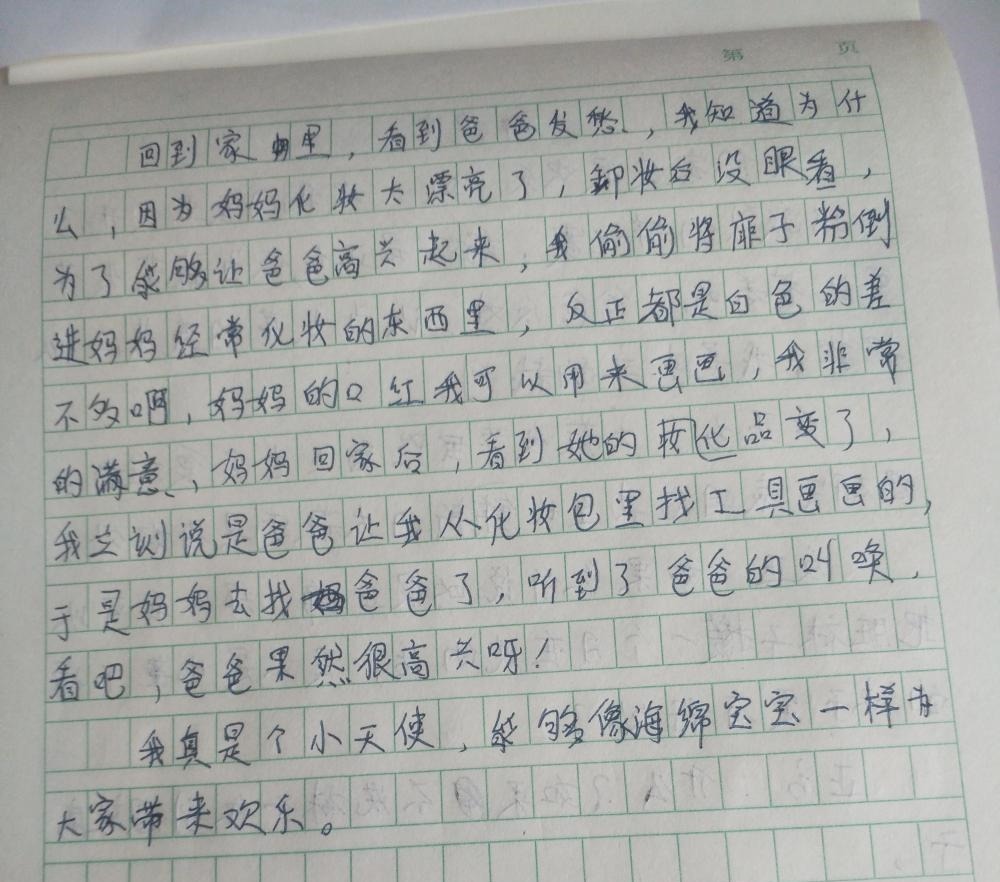 第 页
回到家里，看到爸爸发愁，我知道为什
么，因为妈妈化妆太漂亮了，卸妆后没眼看，
为了能够让爸爸高兴起来，我偷偷将痱子粉倒
进妈妈经常化妆的东西里，反正都是白色的差
不多啊，妈妈的口红我可以用来画画，我非常
的满意，妈妈回家后，看到她的妆化品变了，
我立刻说是爸爸让我从化妆包里找工具画画的，
于是妈妈去找爸爸了，听到了爸爸的叫唤，
看吧，爸爸果然很高兴呀！
我真是个小天使，能够像海绵宝宝一样为
大家带来欢乐。